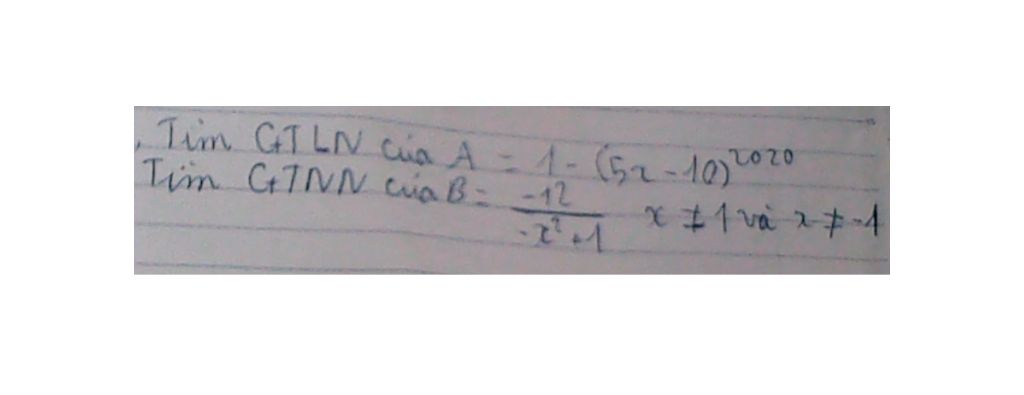 Tìm GTLN của A = 1 - (5x - 10)^2020
Tìm GTNN của B = -12 / -x² + 1 x ≠ 1 và x ≠ -1